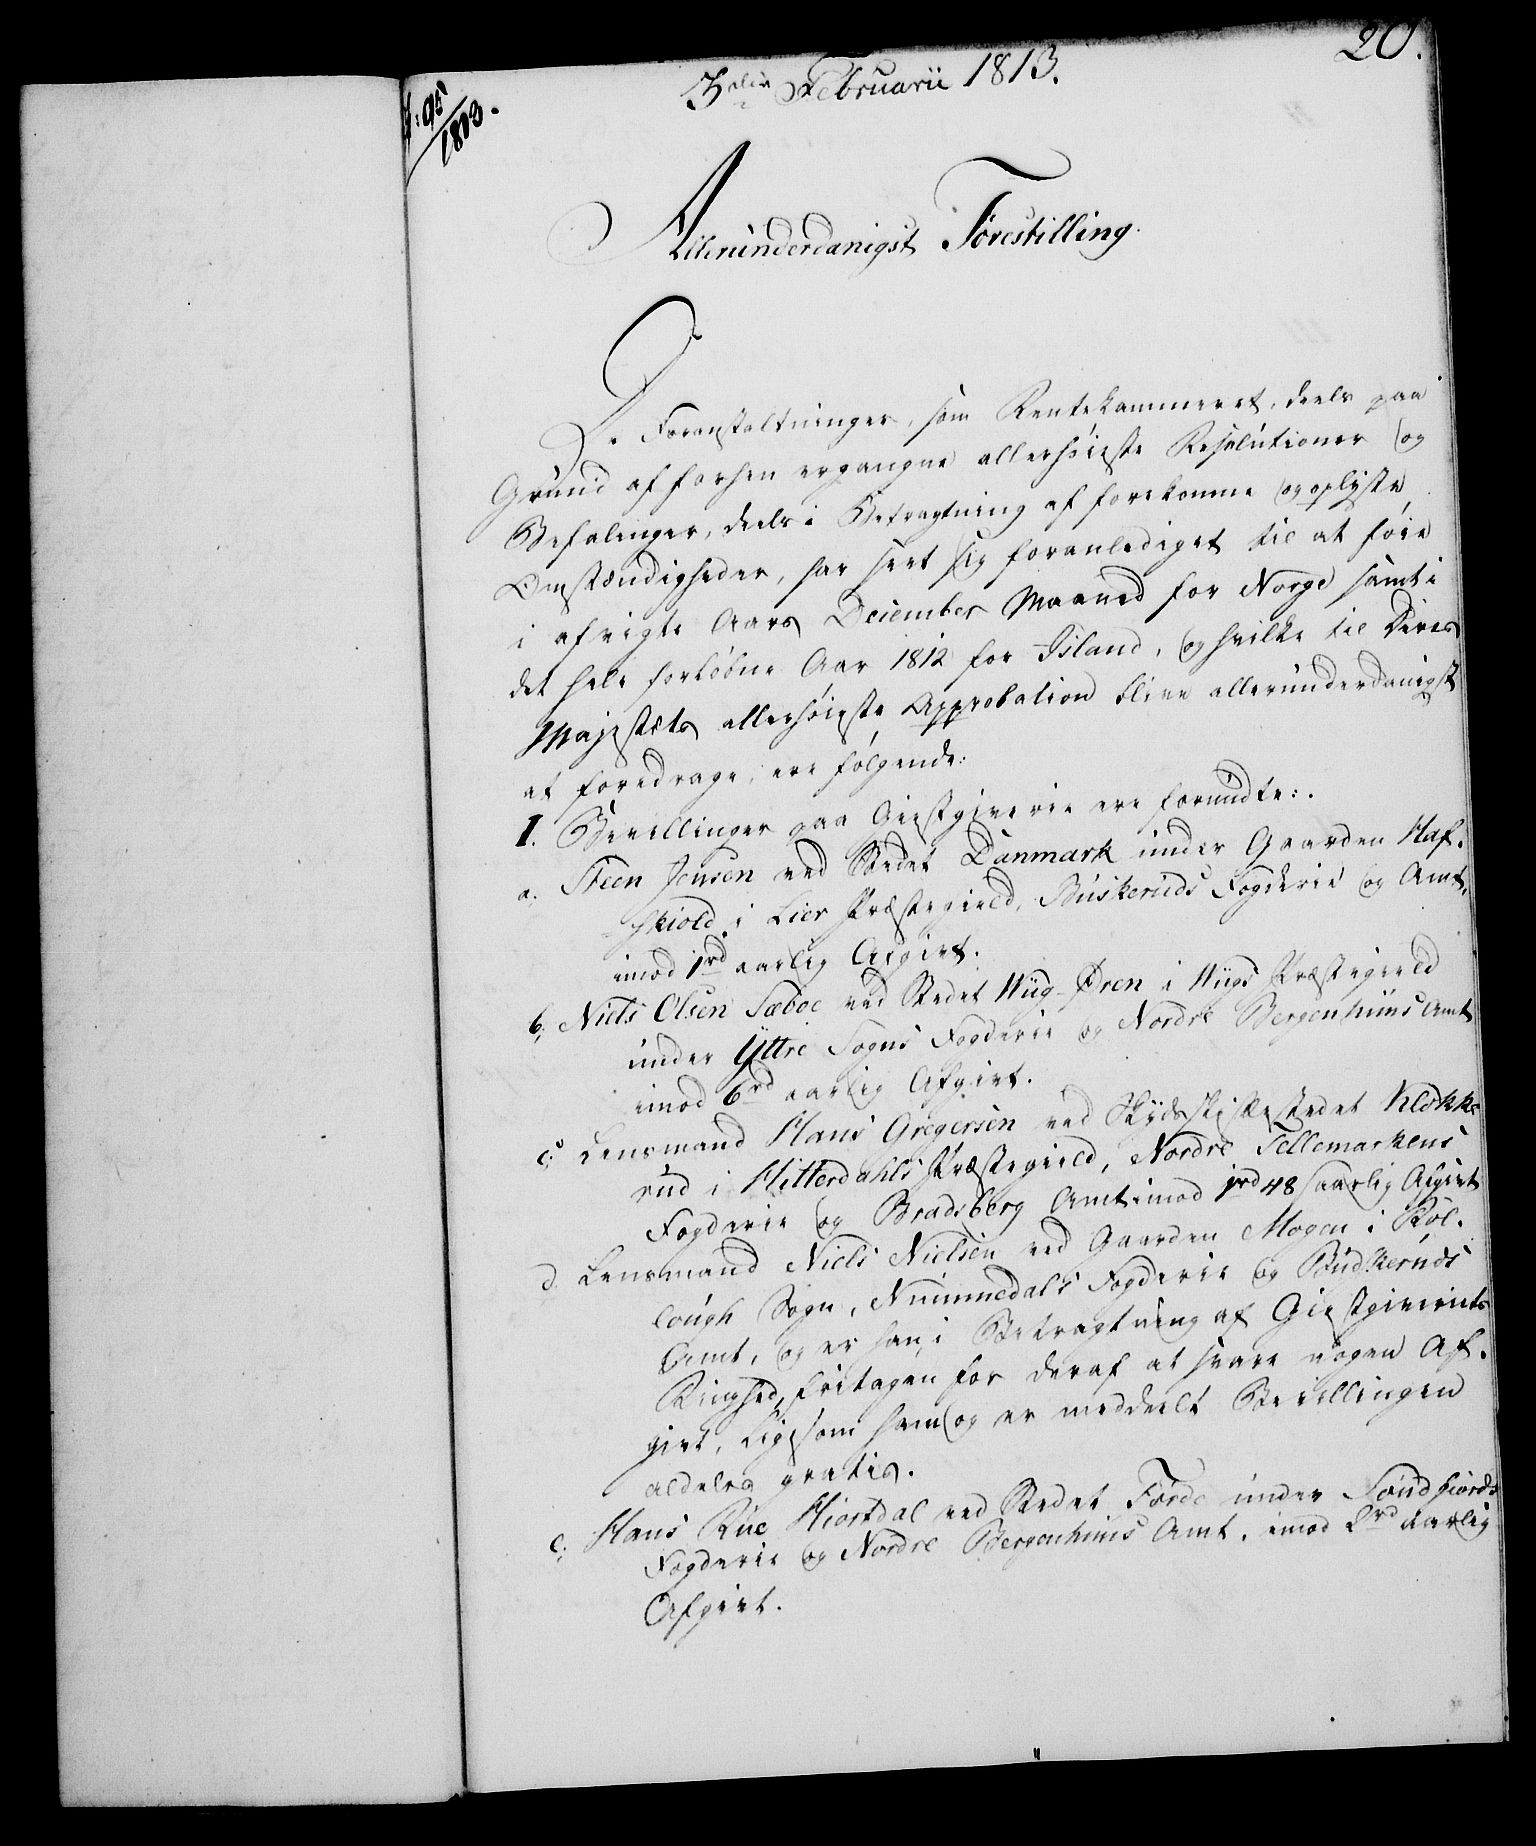 20.
: 95
1813.
3die Februarii 1813.
Allerunderdanigst Forestilling.
De Foranstaltninger, som Rentekammeret, deels paa
Grund af forhen ergangne allerhöieste Resolutioner og
Befalinger, deels i Betragtning af forekomne og oplyste
Omstændigheder, har seet sig foranlediget til at föie
i afvigte Aars December Maaned for Norge samt i
det hele forlöbne Aar 1812 for Island, og hvilke til Deres
Majestæts allerhöieste Approbation blive allerunderdanigst
at foredrage, ere fölgende:
I. Bevillinger paa Giestgiverie ere forundte:
a. Steen Jensen ved Stedet Danmark under Gaarden Haf-
skiold i Lier Præstegield, Buskeruds Fogderie og Amt,
imod 1rd aarlig Afgivt.
b, Niels Olsen Sæboe ved Stedet Wiig-Øren i Wiigs Præstegield
under Yttre Sogns Fogderie og Nordre Bergenhuus Amt
imod 6rd aarlig Afgivt.
c, Lensmand Hans Gregersen ved Skydsskiftestedet Klokke
rud i Hitterdahls Præstegield, Nordre Tellemarkens
Fogderie og Bradsberg Amt imod 1rd 48 s aarlig Afgivt
d. Lensmand Niels Nielsen ved Gaarden Mogen i Rol-
lough Sogn, Nummedals Fogderie og Budskeruds
Amt, og er han, i Betragtning af Giestgiveriets
Ringhed, fritagen for deraf at svare nogen Af-
givt, ligesom ham og er meddeelt Bevillingen
aldeles gratis.
e, Hans Rue Hiortdal ved Stedet Förde under Söndfiords
Fogderie og Nordre Bergenhuus Amt, imod 2rd aarlig
Afgivt.